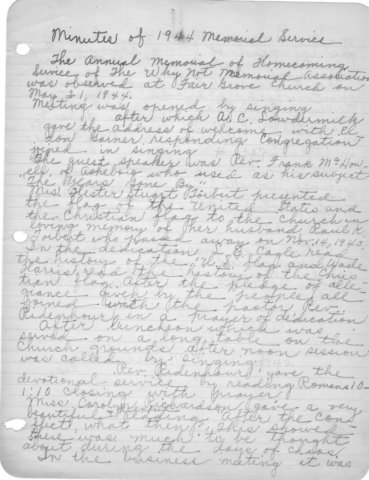 Minutes of 1944 Memorial Service
The Annual Memorial of Homecoming
Service of The Why Not Memorial Association
was observed at Fair Grove Church on
May 21, 1944.
Meeting was opened by singing
after which A. C. Lowdermilk
gave the address of welcome with El-
don Garner responding Congregation
joined in singing
The guest speaker was Rev. Frank McDow-
ell, of Asheboro who used as his subject
"The Years Gone By"
Mrs. Hester Stuart Torbert presented
the flag of the United States and
the Christian flag to the church in
loving memory of her husband Paul K
Torbert who passed away on Nov. 14, 1943
In the dedication J. G. Cagle read
the history of the "U.S." flag and Wade
Harris read the history of the Chris
tian flag. After the pledge of alle
giance given by the people all
joined with the pastor Rev.
Ridenhour in a prayer of dedication
After luncheon which was
served on a long table on the
church grounds after noon session
was called by singing
Rev. Ridenhour gave the
devotional service by reading Romans 10-
1:10 closing with prayer.
Miss Carolyn Richardson gave a very
beautiful reading "After the Con
flict, what then?" This showed
there was much to be thought
about during the days of chaos.
In the business meeting it was